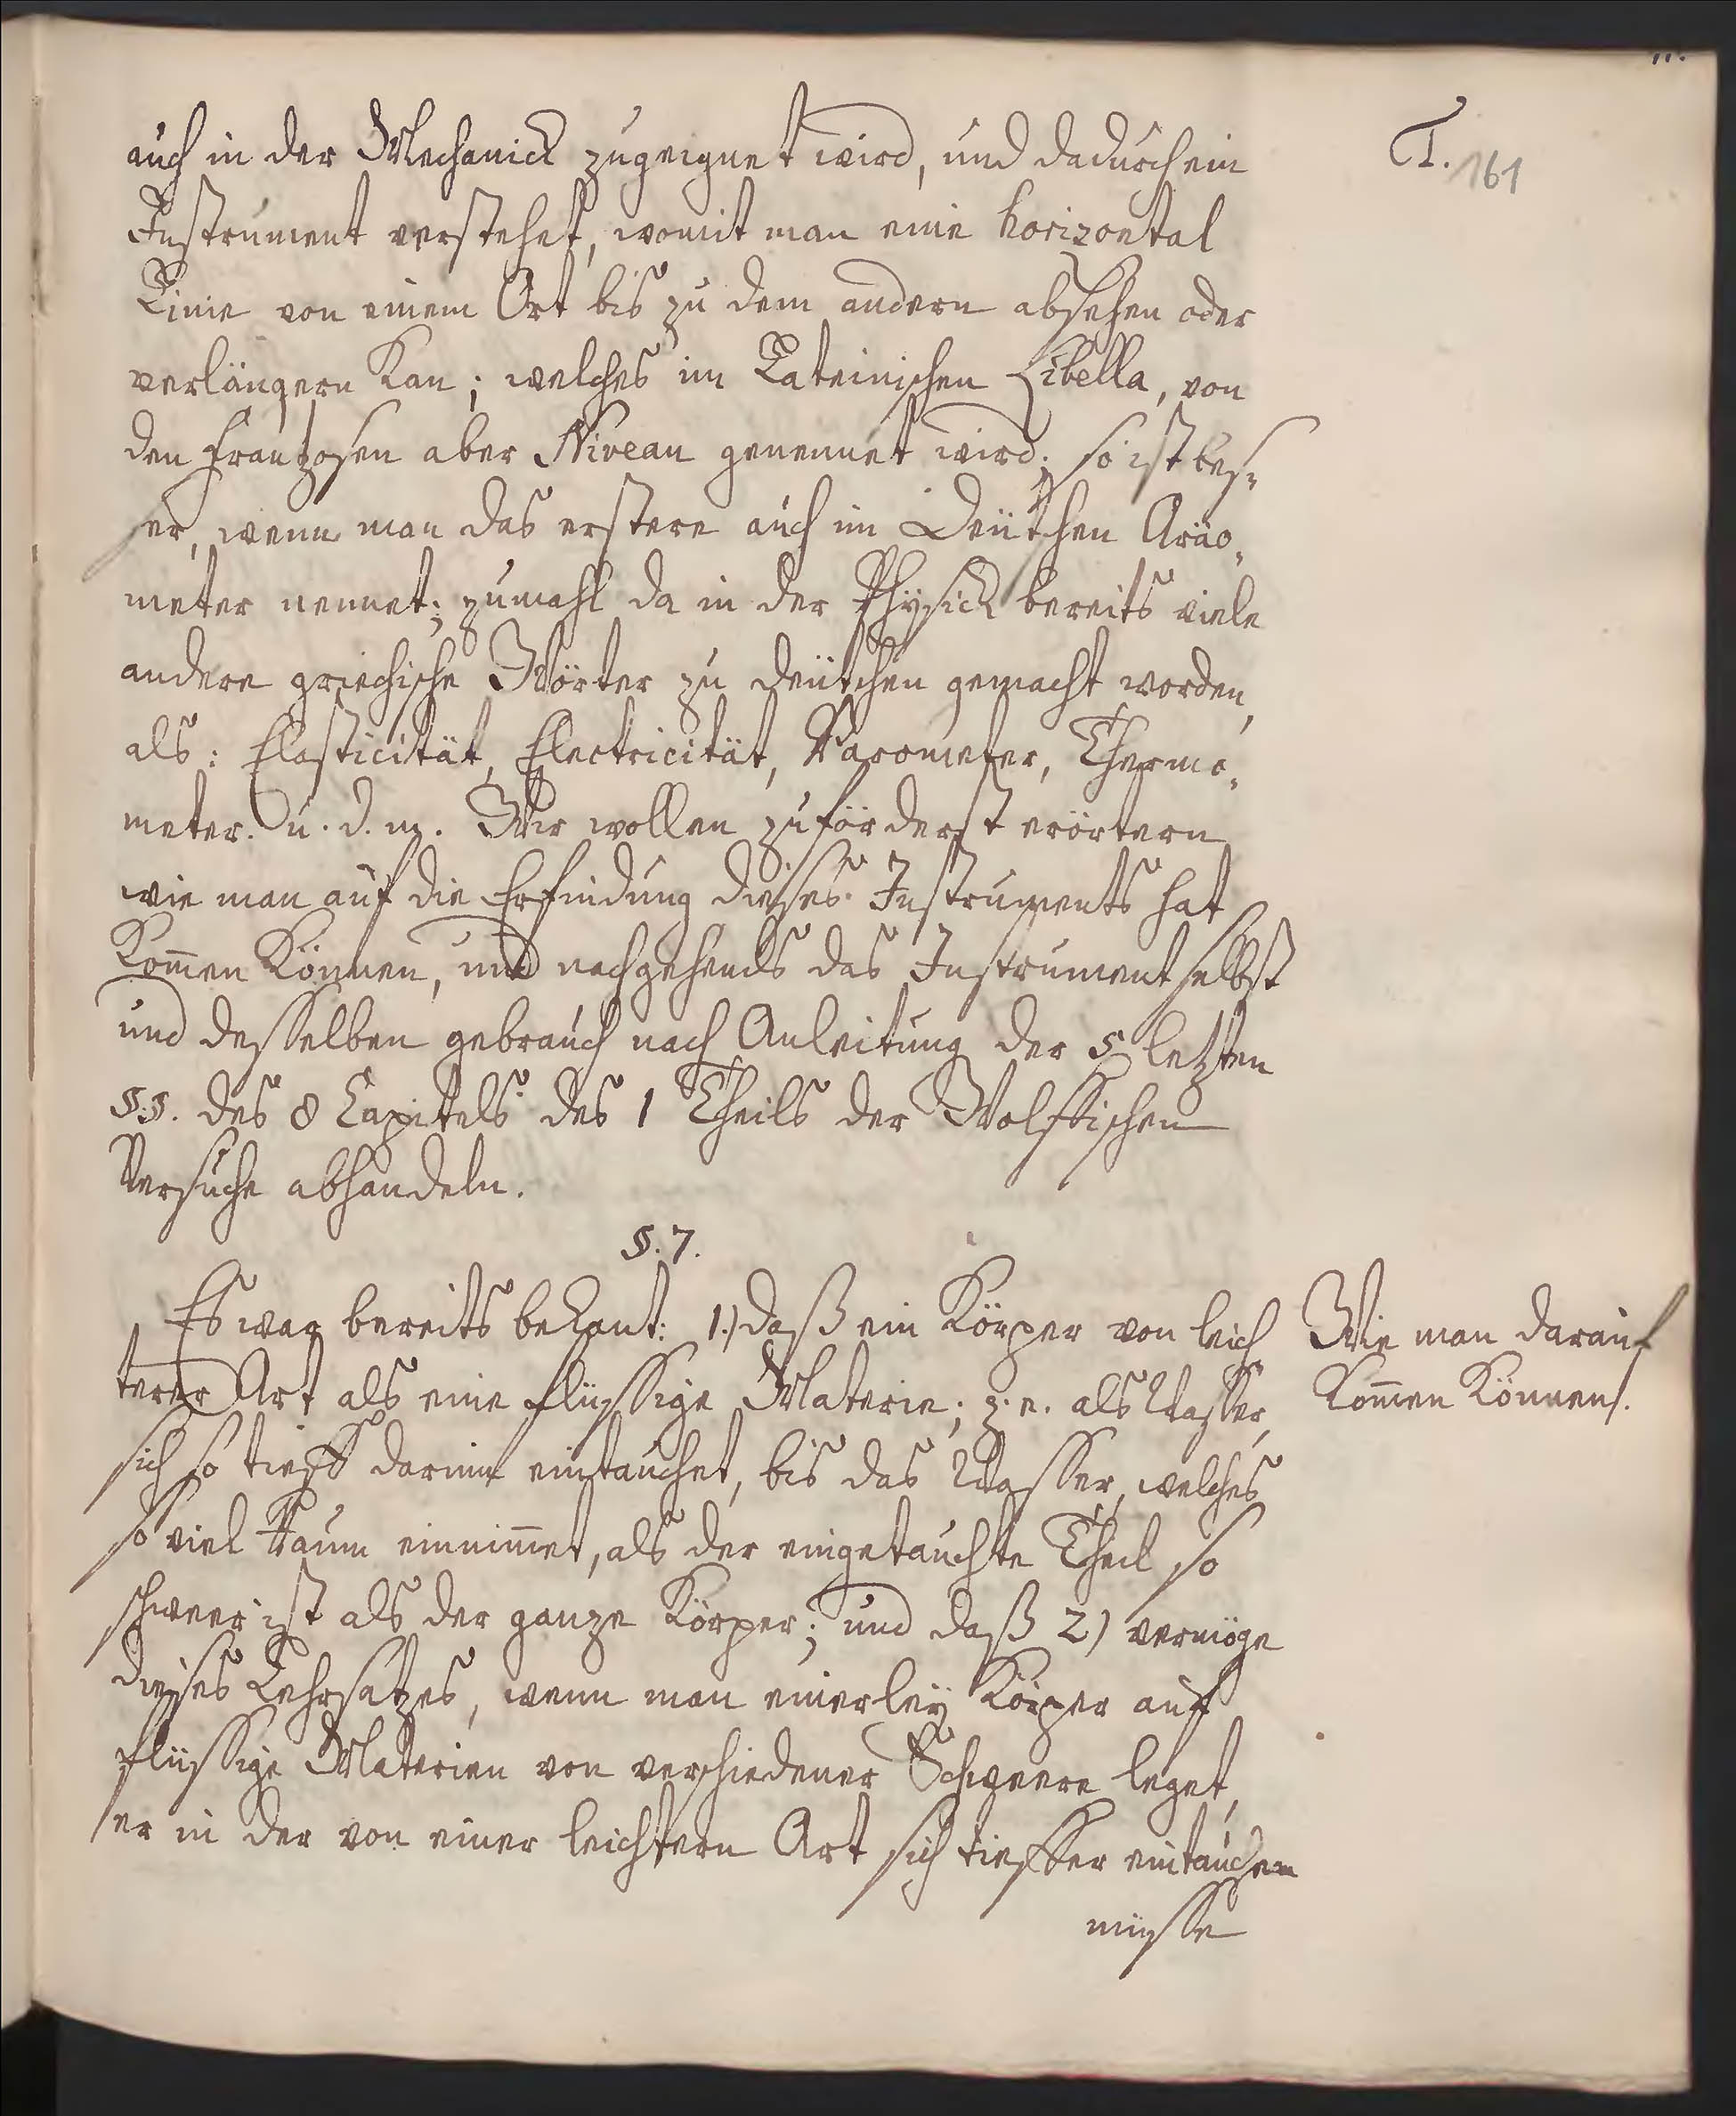 T. 161
auch in der Mechanick zugeeignet wird, und dadurch ein
Instrument verstehet, womit man eine horizontal
Linie von einem Ort bis zu dem andern absehen oder
verlängern kan; welches im Lateinischen Libella, von
den Frantzosen aber Niveau genennet wird; so ist bes-
ser, wenn man das erstere auch im Deütschen Aräo-
meter nennet; zumahl da in der Physick bereits viele
andere griechische Wörter zu deütschen gemacht worden,
als: Elasticität, Electricität, Barometer, Thermo-
meter. u. d. m. Wir wollen zuförderst erörtern
wie man auf die Erfindung dieses Instruments hat
kom̅en können, und nachgehends das Instrument selbst
und desselben gebrauch nach Anleitung der 5 letzten
§.§. des 8 Capitels des 1 Theils der Wolffischen
Versuche abhandeln.
§. 7.
Es war bereits bekant: 1.) daß ein Körper von leich
terer Art als eine flüssige Materie; z. e. als Wasser,
sich so tieff darinn eintauchet, bis das Wasser, welches
so viel Raum einnim̅et, als der eingetauchte Theil so
schweer ist als der ganze Körper; und daß 2) vermöge
dieses Lehrsatzes, wenn man einerleÿ Körper auf
flüssige Materien von verschiedener Schweere leget,
er in der von einer leichtern Art sich tieffer eintauchen
müsse
Wie man darauf
kom̅en können.